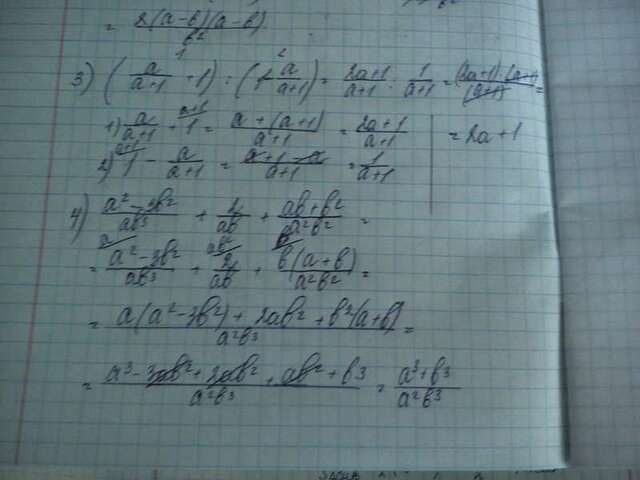 = 2(a-b)(a-b) / b²
3) (a/(a+1) + 1) : (1 - a/(a+1)) = (2a+1)/(a+1) : 1/(a+1) = (2a+1)·(a+1)/(a+1) =
1) a/(a+1) + 1 = (a+(a+1))/(a+1) = (2a+1)/(a+1) = 2a+1
2) 1 - a/(a+1) = (a+1-a)/(a+1) = 1/(a+1)
4) (a²-3b²)/(ab³) + 2/(ab) + (ab+b²)/(a²b²) =
= (a²-3b²)/(ab³) + 2/(ab) + b(a+b)/(a²b²) =
= (a(a²-3b²)+2ab²+b²(a+b))/(a²b³) =
= (a³-3ab²+2ab²+ab²+b³)/(a²b³) = (a³+b³)/(a²b³)